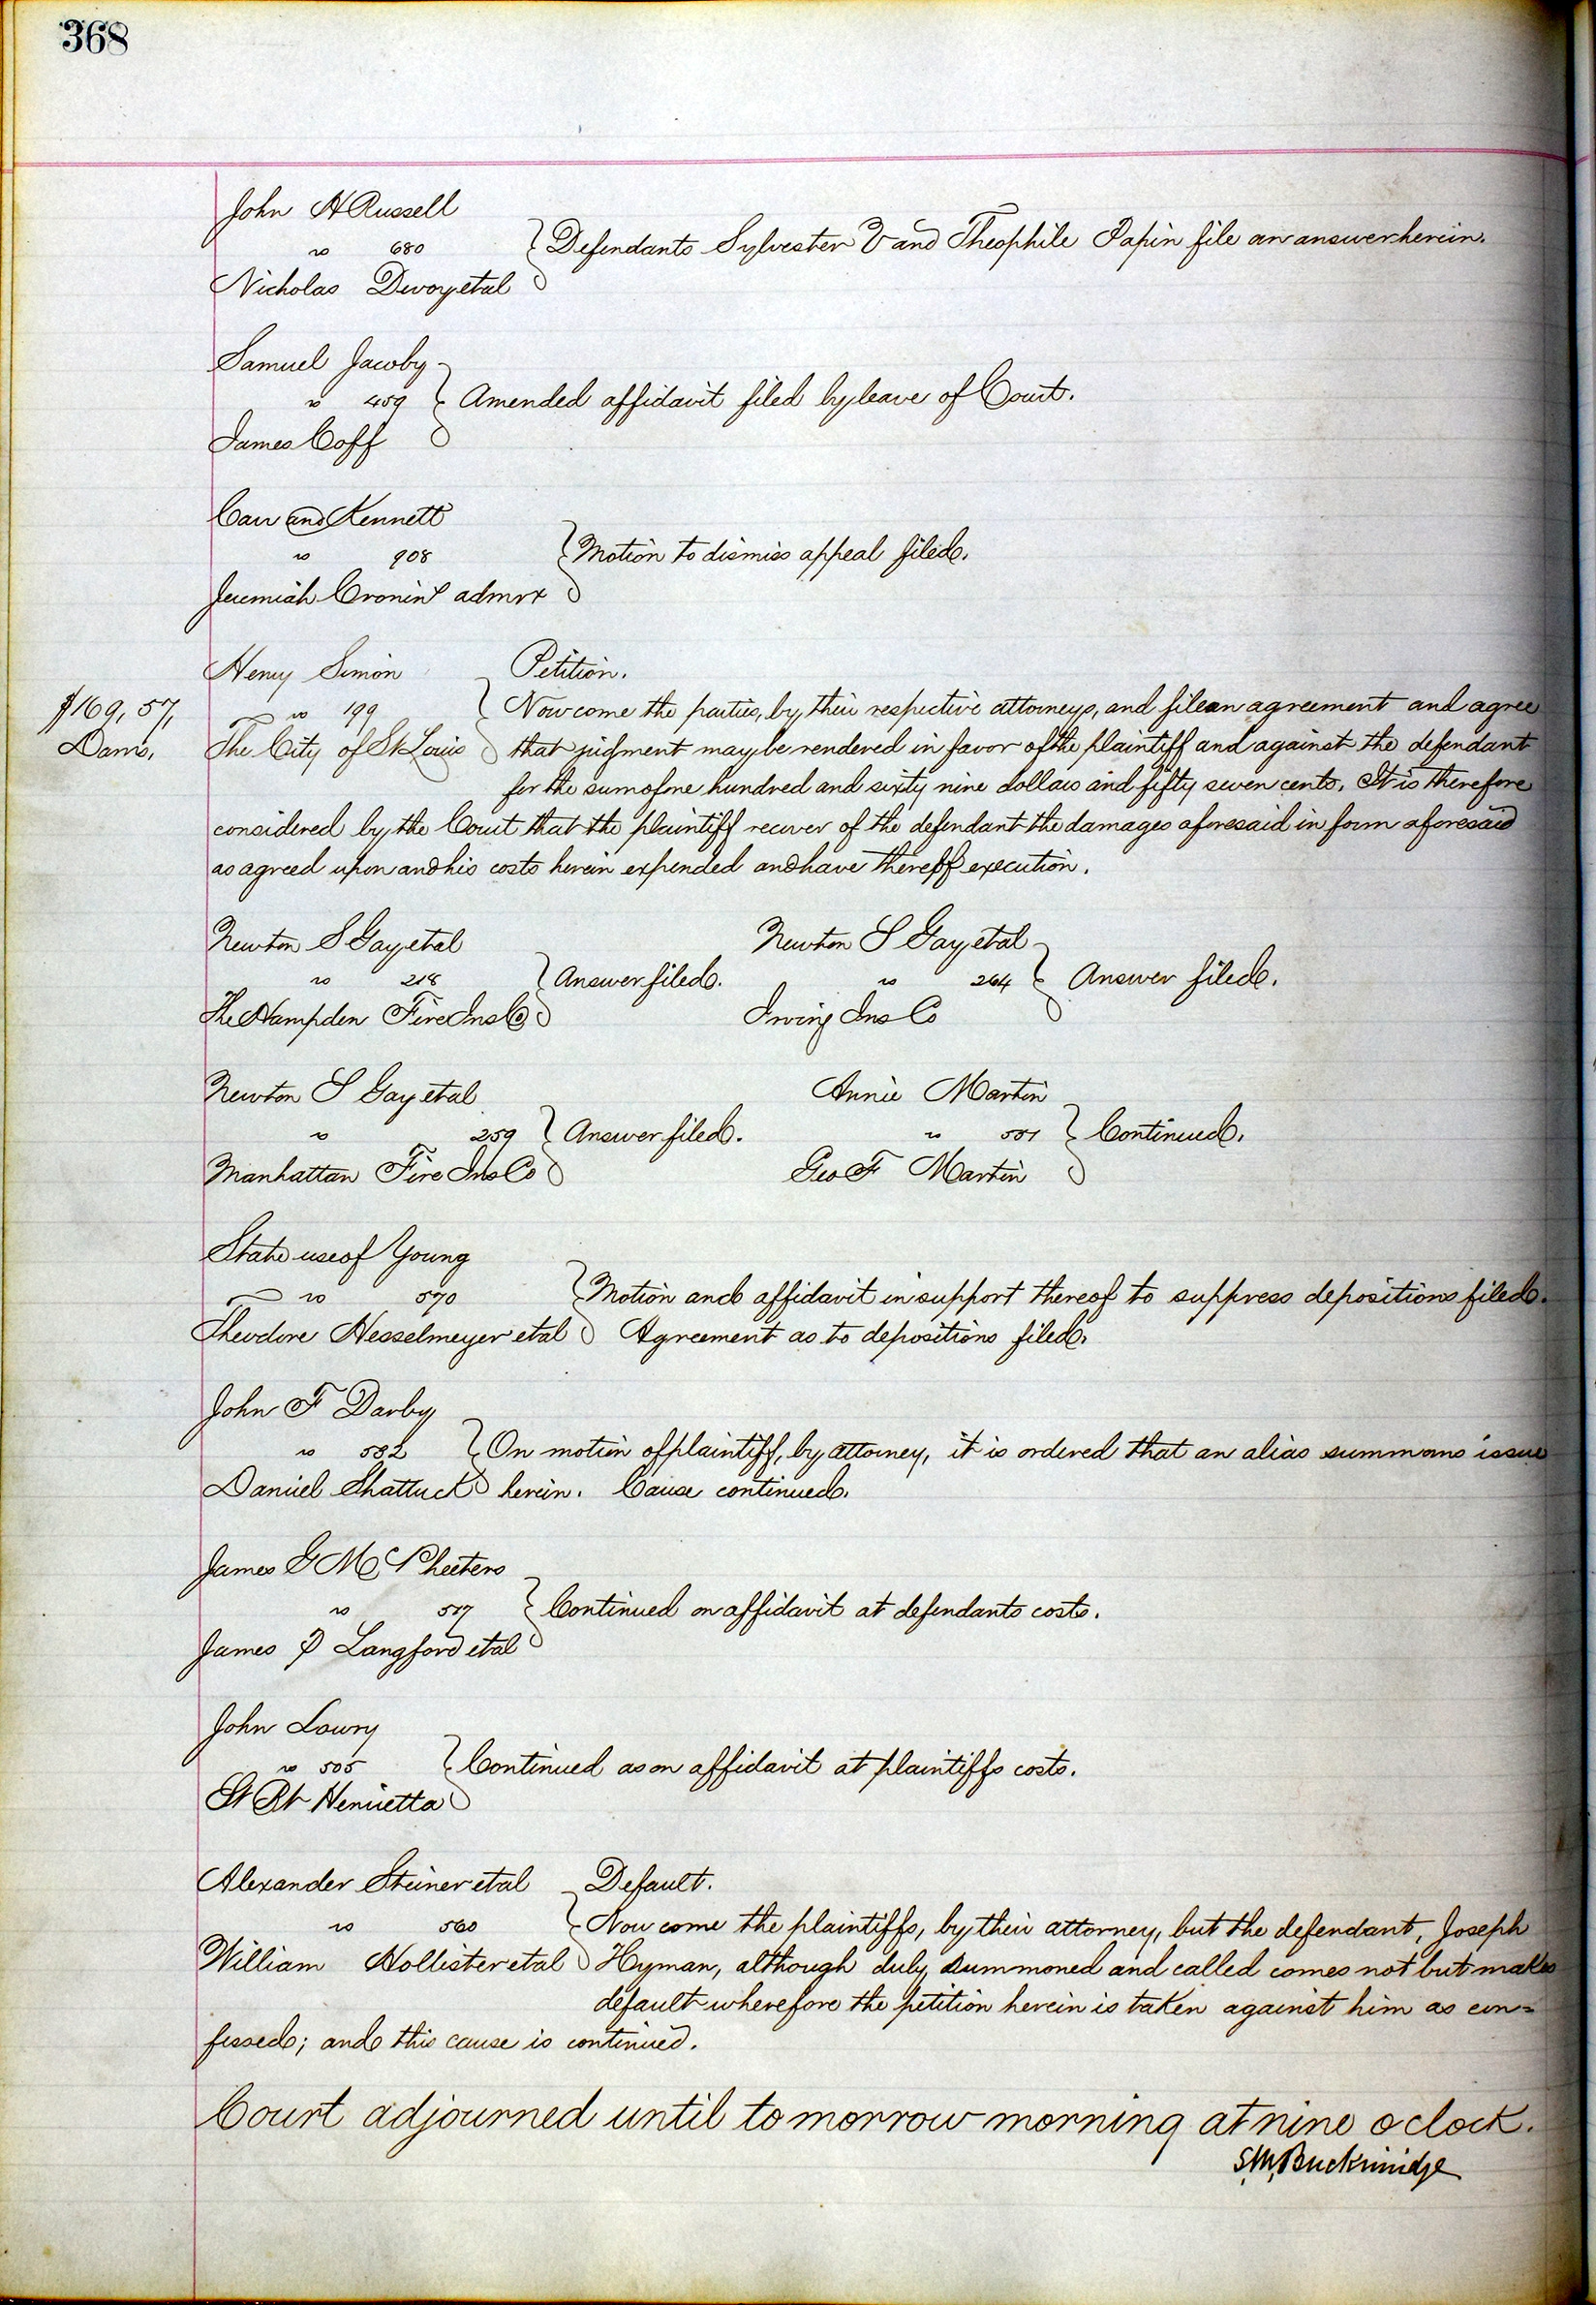 368
John H Russell
vs 680
Nicholas Devoy et al
Defendants Sylvester V and Theophile Papin file an answer herein.
Samuel Jacoby
vs 459
James Goff
Amended affidavit filed by leave of Court.
Carr and Kennett
vs 908
Jeremiah Cronin's admrx
Motion to dismiss appeal filed.
Henry Simon
vs 199
The City of St Louis
$169,57,
Dams,
Petition.
Now come the parties, by their respective attorneys, and file an agreement and agree
that judgment may be rendered in favor of the plaintiff and against the defendant
for the sum of one hundred and sixty nine dollars and fifty seven cents. It is therefore
considered by the Court that the plaintiff recover of the defendant the damages aforesaid in form aforesaid
as agreed upon and his costs herein expended and have thereof execution.
Newton S Gay et al
vs 218
The Hampden Fire Ins Co
Answer filed.
Newton S Gay et al
vs 264
Irving Ins Co
Answer filed.
Newton S Gay et al
vs 259
Manhattan Fire Ins Co
Answer filed.
Annie Martin
vs 551
Geo F Martin
Continued.
State use of Young
vs 570
Theodore Hesselmeyer et al
Motion and affidavit in support thereof to suppress depositions filed.
Agreement as to depositions filed.
John F Darby
vs 582
Daniel Shattuck
On motion of plaintiff, by attorney, it is ordered that an alias summons issue
herein. Cause continued.
James G McPheeters
vs 517
James P Langford et al
Continued on affidavit at defendants costs.
John Lowry
vs 505
St Bt Henrietta
Continued as on affidavit at plaintiffs costs.
Alexander Steiner et al
vs 560
William Hollister et al
Default.
Now come the plaintiffs, by their attorney, but the defendant, Joseph
Hyman, although duly summoned and called comes not but makes
default wherefore the petition herein is taken against him as con=
fessed; and this cause is continued.
Court adjourned until tomorrow morning at nine o clock.
S.M. Breckinridge